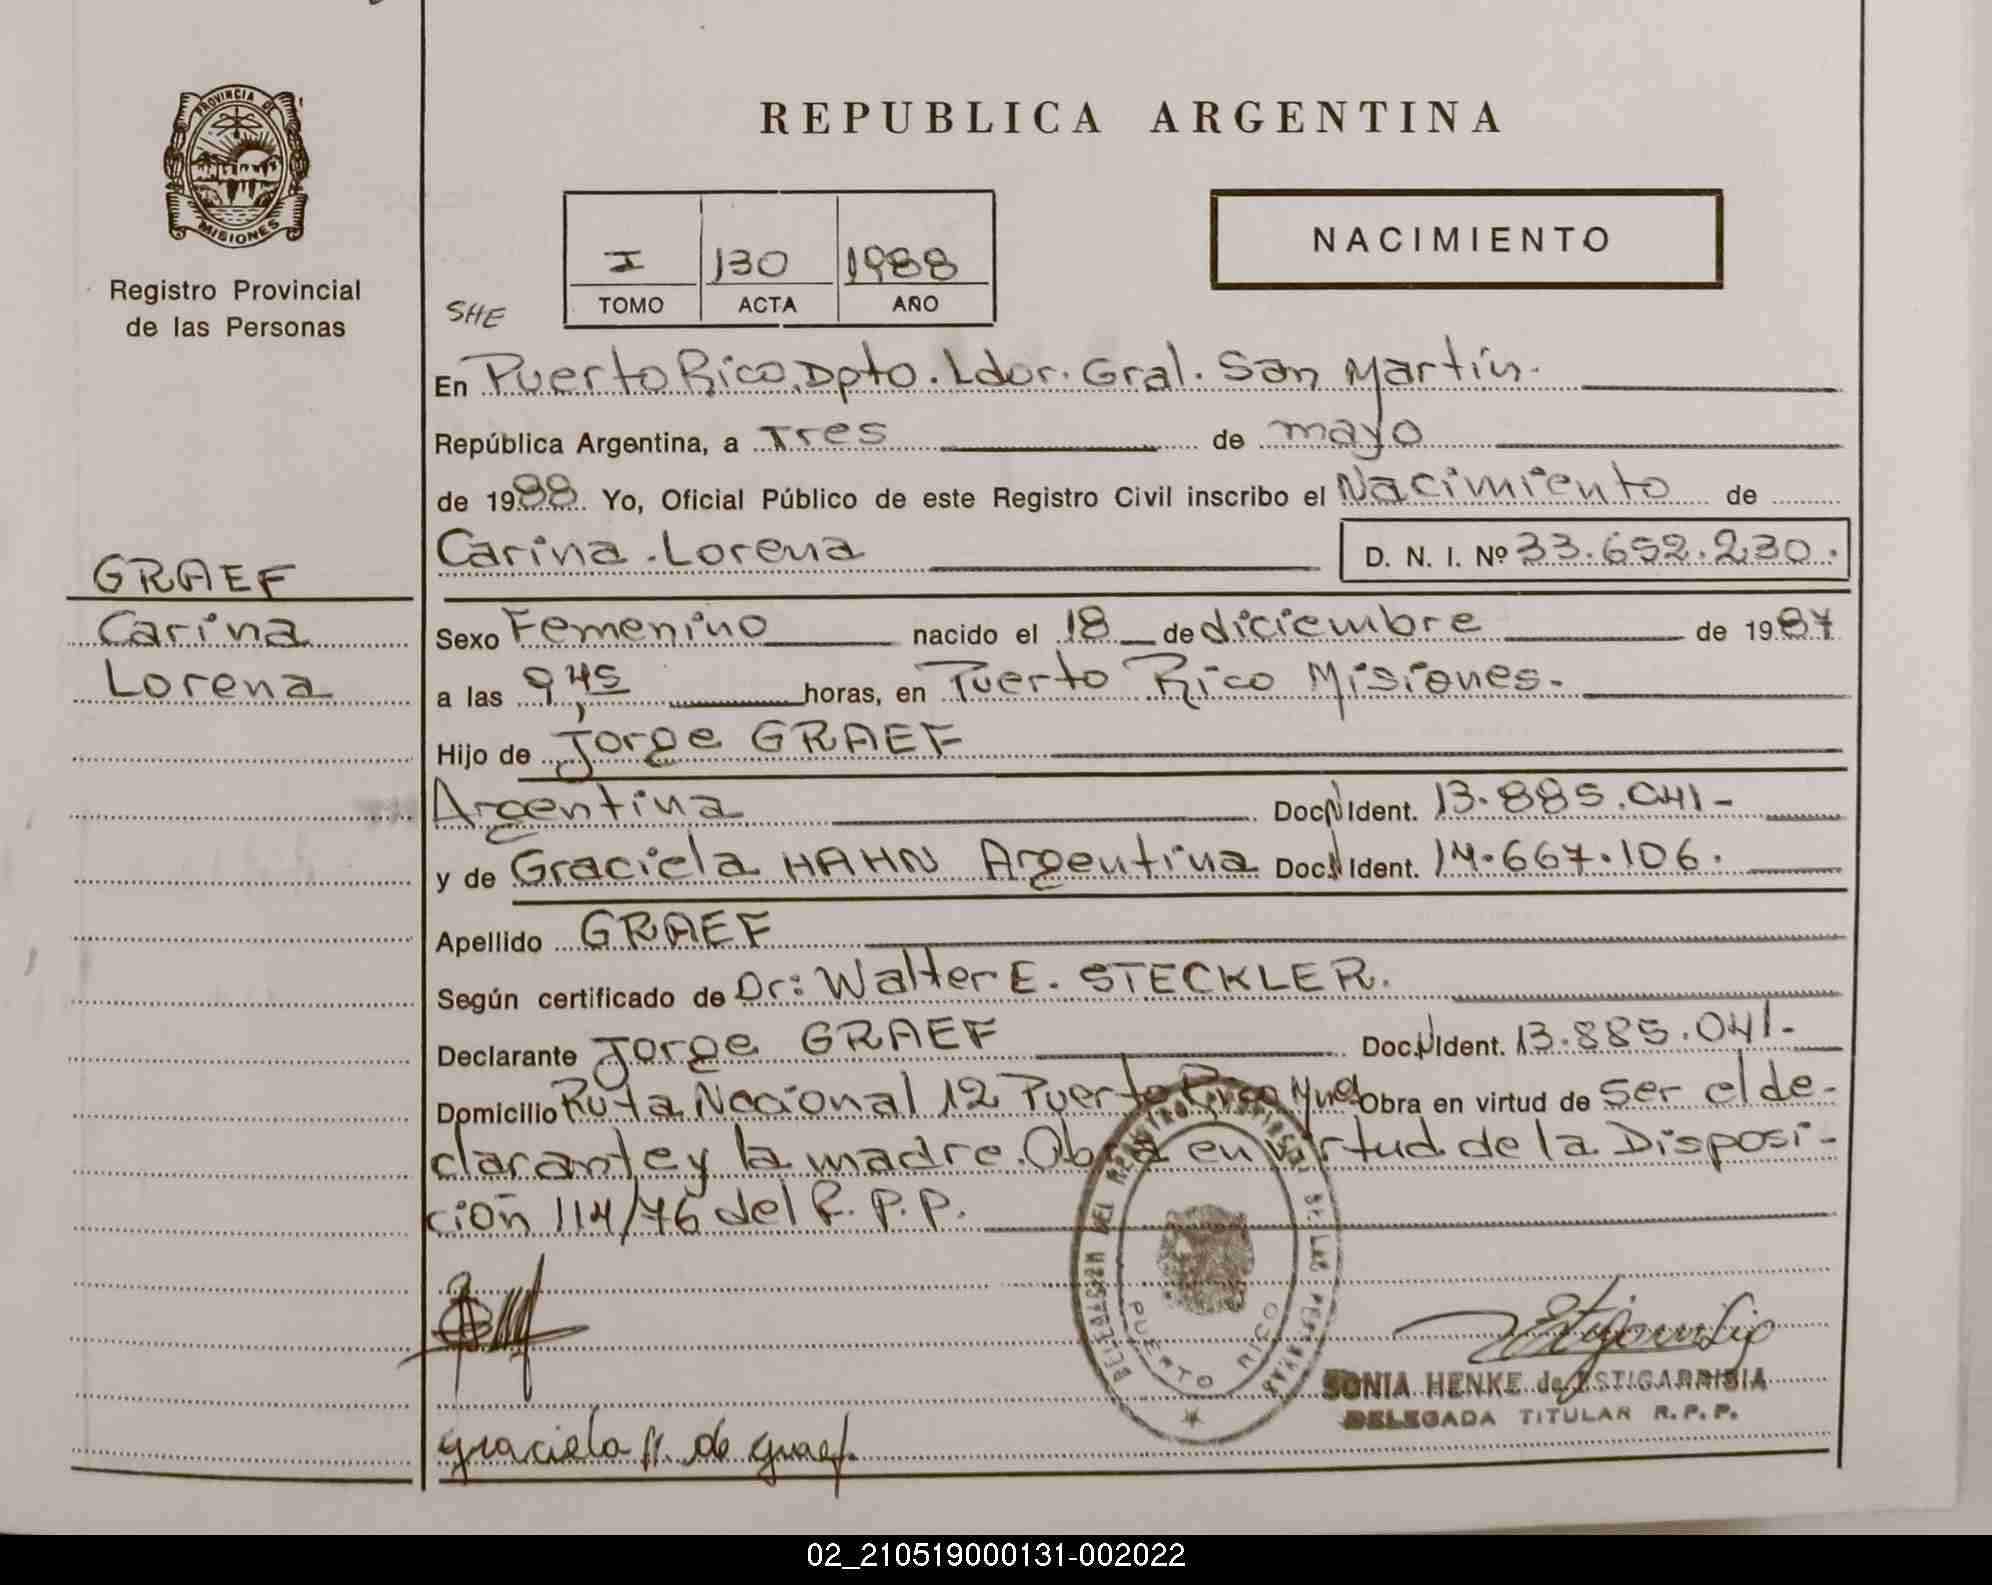 PROVINCIA DE
MISIONES
Registro Provincial
de las Personas
GRAEF
Carina
Lorena
REPUBLICA ARGENTINA
I 130 1988
TOMO ACTA AÑO
NACIMIENTO
SHE
En Puerto Rico, Dpto. Ldor. Gral. San Martín.
República Argentina, a Tres de mayo
de 1988 Yo, Oficial Público de este Registro Civil inscribo el Nacimiento de
Carina Lorena D. N. I. Nº 33.652.230.
Sexo Femenino nacido el 18 de diciembre de 1987
a las 9,45 horas, en Puerto Rico Misiones.
Hijo de Jorge GRAEF
Argentina Doc.N Ident. 13.885.041-
y de Graciela HAHN Argentina Doc.N Ident. 14.667.106.
Apellido GRAEF
Según certificado de Dr: Walter E. STECKLER.
Declarante Jorge GRAEF Doc.N Ident. 13.885.041-
Domicilio Ruta Nacional 12 Puerto Rico Mnes Obra en virtud de ser el de-
clarante y la madre. Obra en virtud de la Disposi-
ción 114/76 del R.P.P.
DELEGACION DEL REGISTRO PROVINCIAL DE LAS PERSONAS
PUERTO RICO
SONIA HENKE de ESTIGARRIBIA
DELEGADA TITULAR R.P.P.
Graciela H. de Graef
02_210519000131-002022